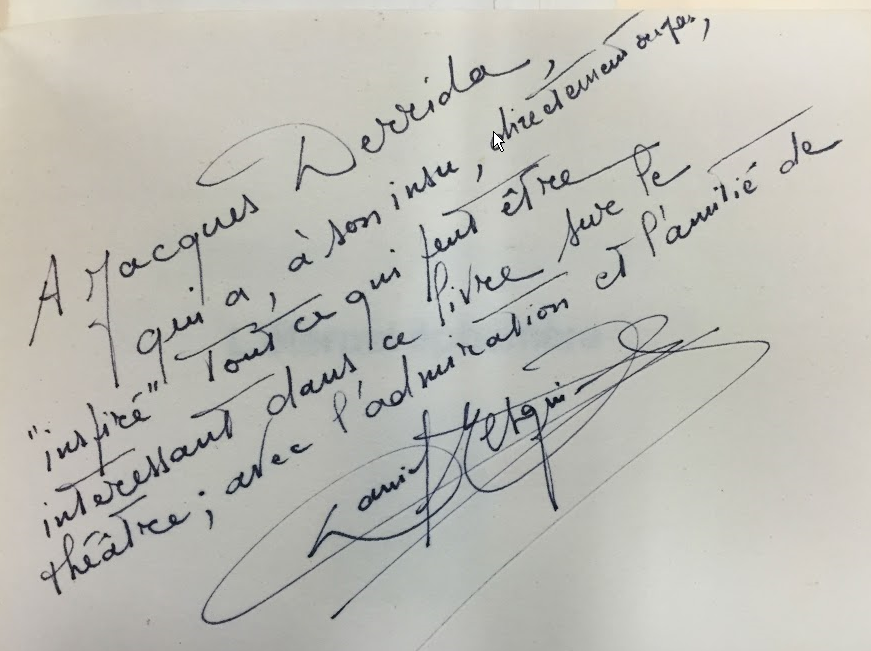 A Jacques Derrida,
qui a, à son insu, directement ou pas,
"inspiré" tout ce qui peut être
intéressant dans ce livre sur le
théâtre; avec l'admiration et l'amitié de
Daniel Mesguich